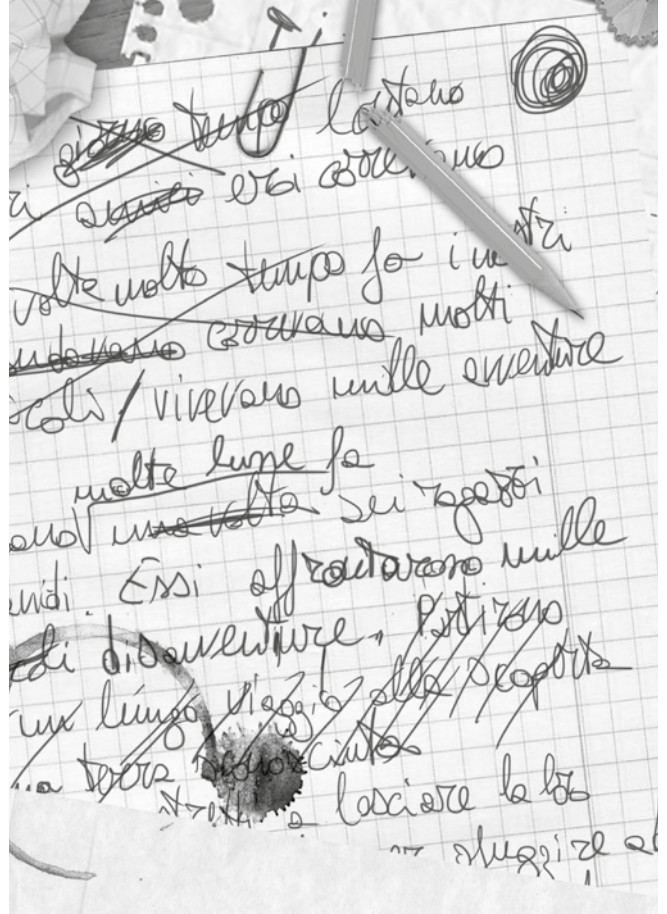 giorno tempo lontano
amici eroi correvano
volte molto tempo fa i nostri
andavano correvano molti
coli / vivevano mille avventure
molte lune fa
una volta sei ragazzi
Essi affrontarono mille
di disavventure. Partirono
un lungo viaggio alla scoperta
terra sconosciuta
a lasciare la loro
sfuggire